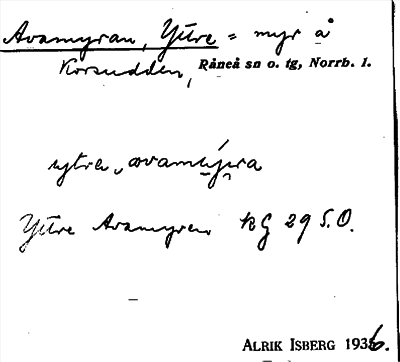 Avamyran, Yttre = myr å
Korsudden, Råneå sn o. tg, Norrb. l.
yttre avamýra
Yttre Avamyren KG 29 S.O.
ALRIK ISBERG 1936.